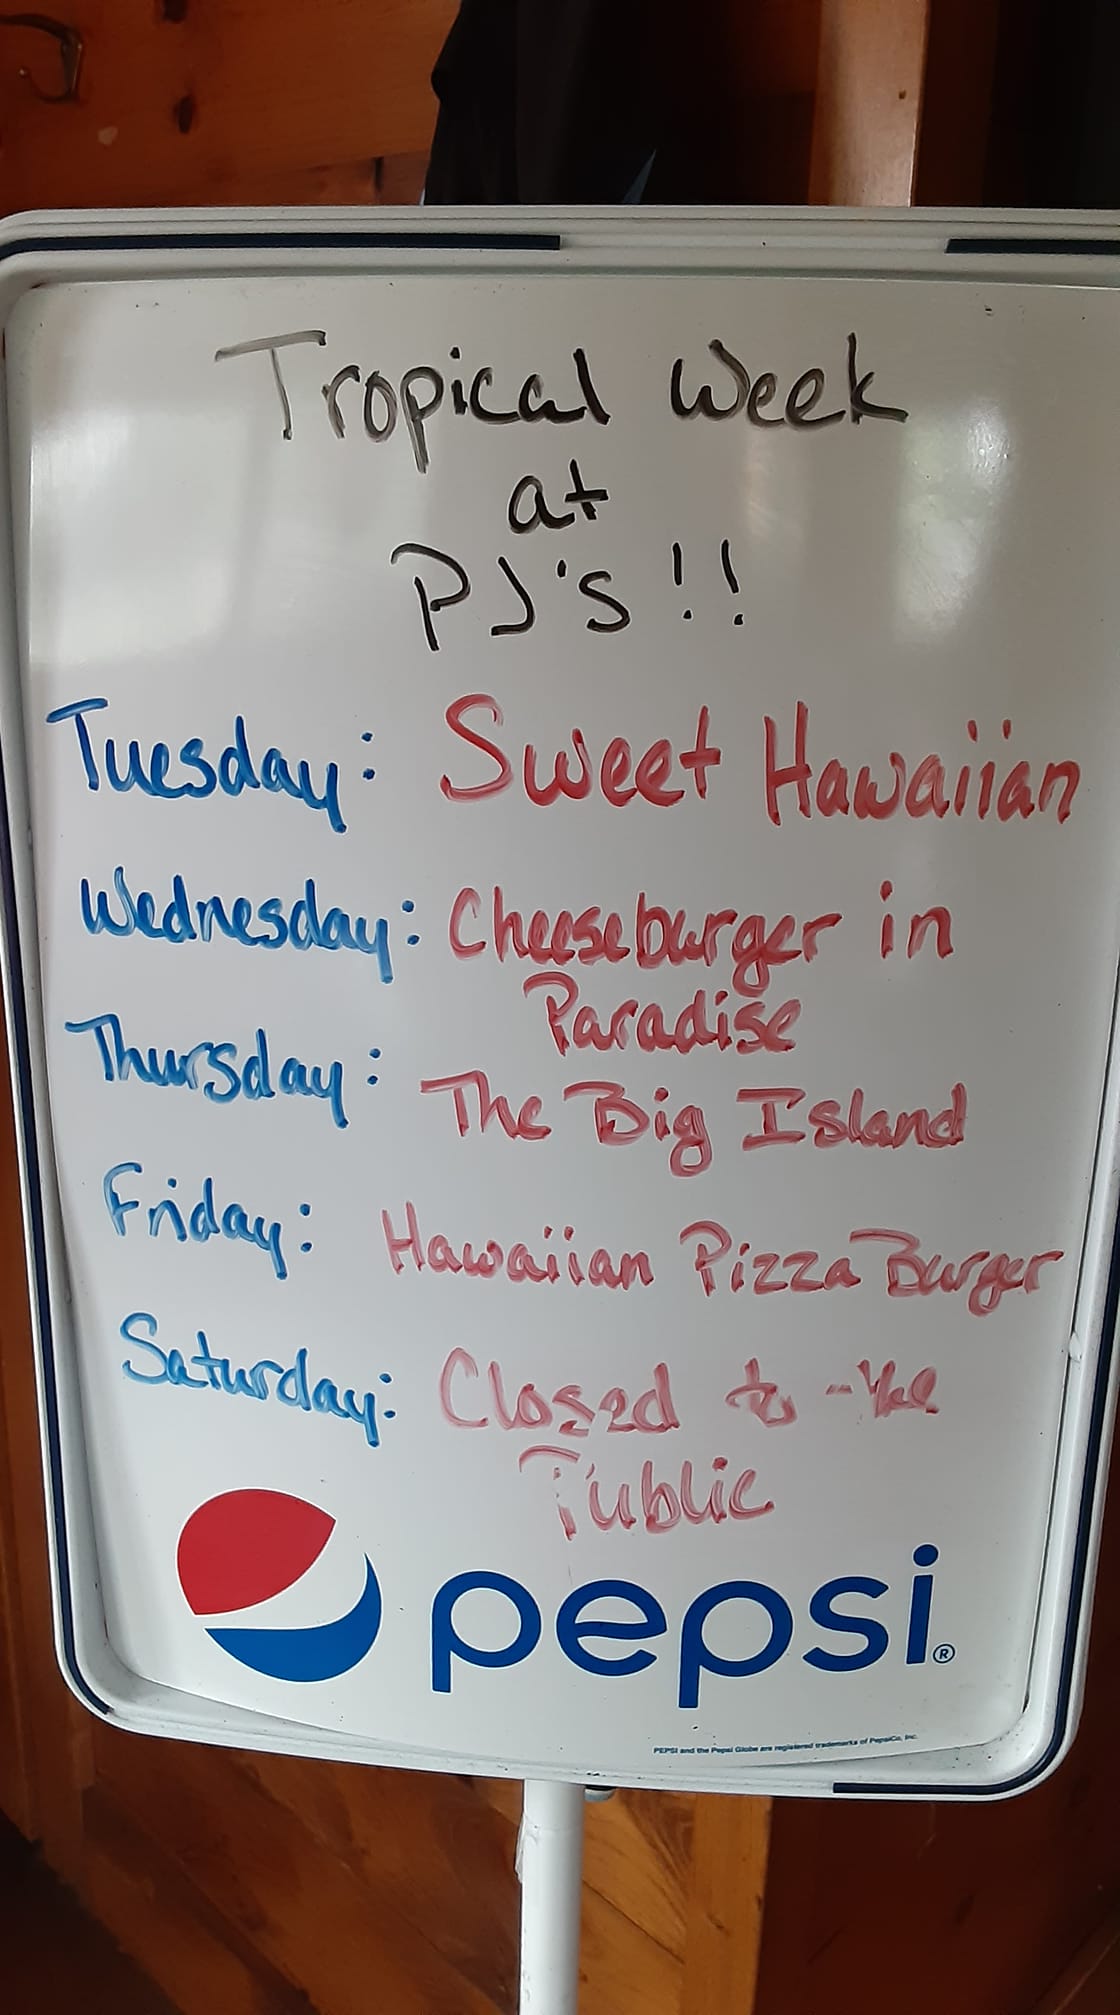 Tropical Week
at
PJ's!!
Tuesday: Sweet Hawaiian
Wednesday: Cheeseburger in
Paradise
Thursday: The Big Island
Friday: Hawaiian Pizza Burger
Saturday: Closed to the
Public
pepsi®
PEPSI and the Pepsi Globe are registered trademarks of PepsiCo, Inc.